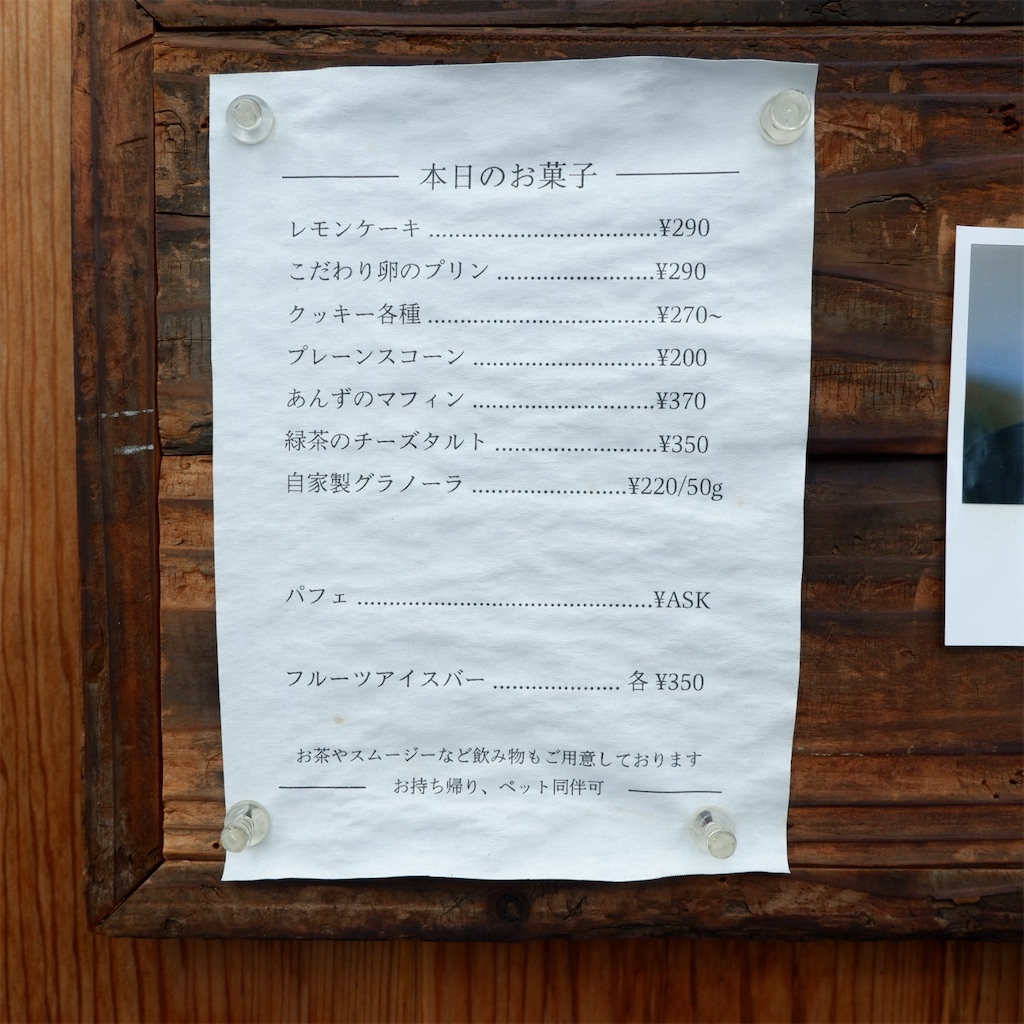 本日のお菓子
レモンケーキ ....................................¥290
こだわり卵のプリン ........................¥290
クッキー各種 ...................................¥270~
プレーンスコーン ............................¥200
あんずのマフィン ............................¥370
緑茶のチーズタルト .........................¥350
自家製グラノーラ ........................¥220/50g
パフェ ..............................................¥ASK
フルーツアイスバー .................... 各 ¥350
お茶やスムージーなど飲み物もご用意しております
お持ち帰り、ペット同伴可